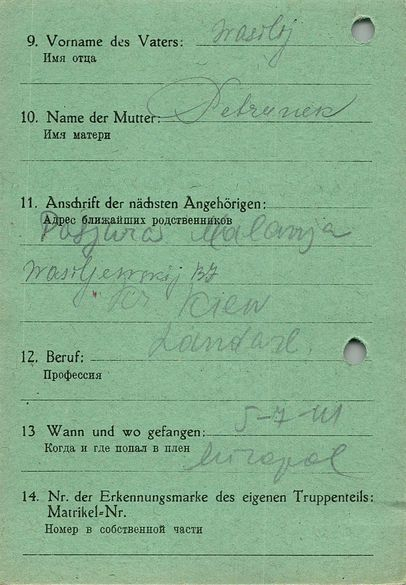 9. Vorname des Vaters: Wasilij
Имя отца
10. Name der Mutter: Petrunek
Имя матери
11. Anschrift der nächsten Angehörigen:
Адрес ближайших родственников
Malanja
Kr Kiew
12. Beruf: Landarb.
Профессия
13 Wann und wo gefangen: 5-7-41
Когда и где попал в плен Miropol
14. Nr. der Erkennungsmarke des eigenen Truppenteils:
Matrikel=Nr.
Номер в собственной части